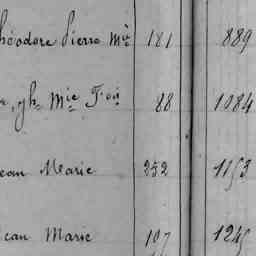 héodore Pierre Mie 181 889
yh Mie Fois 88 1084
ean Marie 252 1153
ean Marie 197 1245